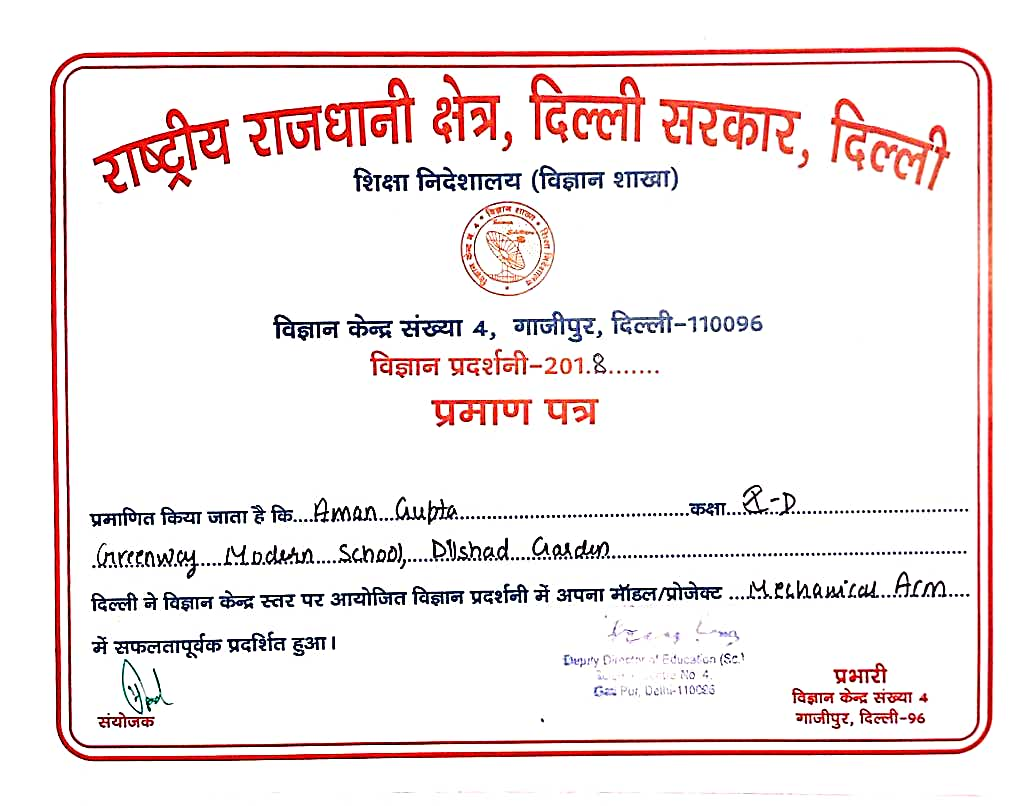 राष्ट्रीय राजधानी क्षेत्र, दिल्ली सरकार, दिल्ली
शिक्षा निदेशालय (विज्ञान शाखा)
विज्ञान केन्द्र न. 4 • विज्ञान शाखा • शिक्षा निदेशालय
विज्ञान केन्द्र संख्या 4, गाजीपुर, दिल्ली-110096
विज्ञान प्रदर्शनी-201.8.......
प्रमाण पत्र
प्रमाणित किया जाता है कि....Aman Gupta..........कक्षा...X-D..........
Greenway Modern School, Dilshad Garden
दिल्ली ने विज्ञान केन्द्र स्तर पर आयोजित विज्ञान प्रदर्शनी में अपना मॉडल/प्रोजेक्ट ...Mechanical Arm....
में सफलतापूर्वक प्रदर्शित हुआ।
Deputy Director of Education (Sc.)
No. 4,
Gazi Pur, Delhi-110096
संयोजक
प्रभारी
विज्ञान केन्द्र संख्या 4
गाजीपुर, दिल्ली-96